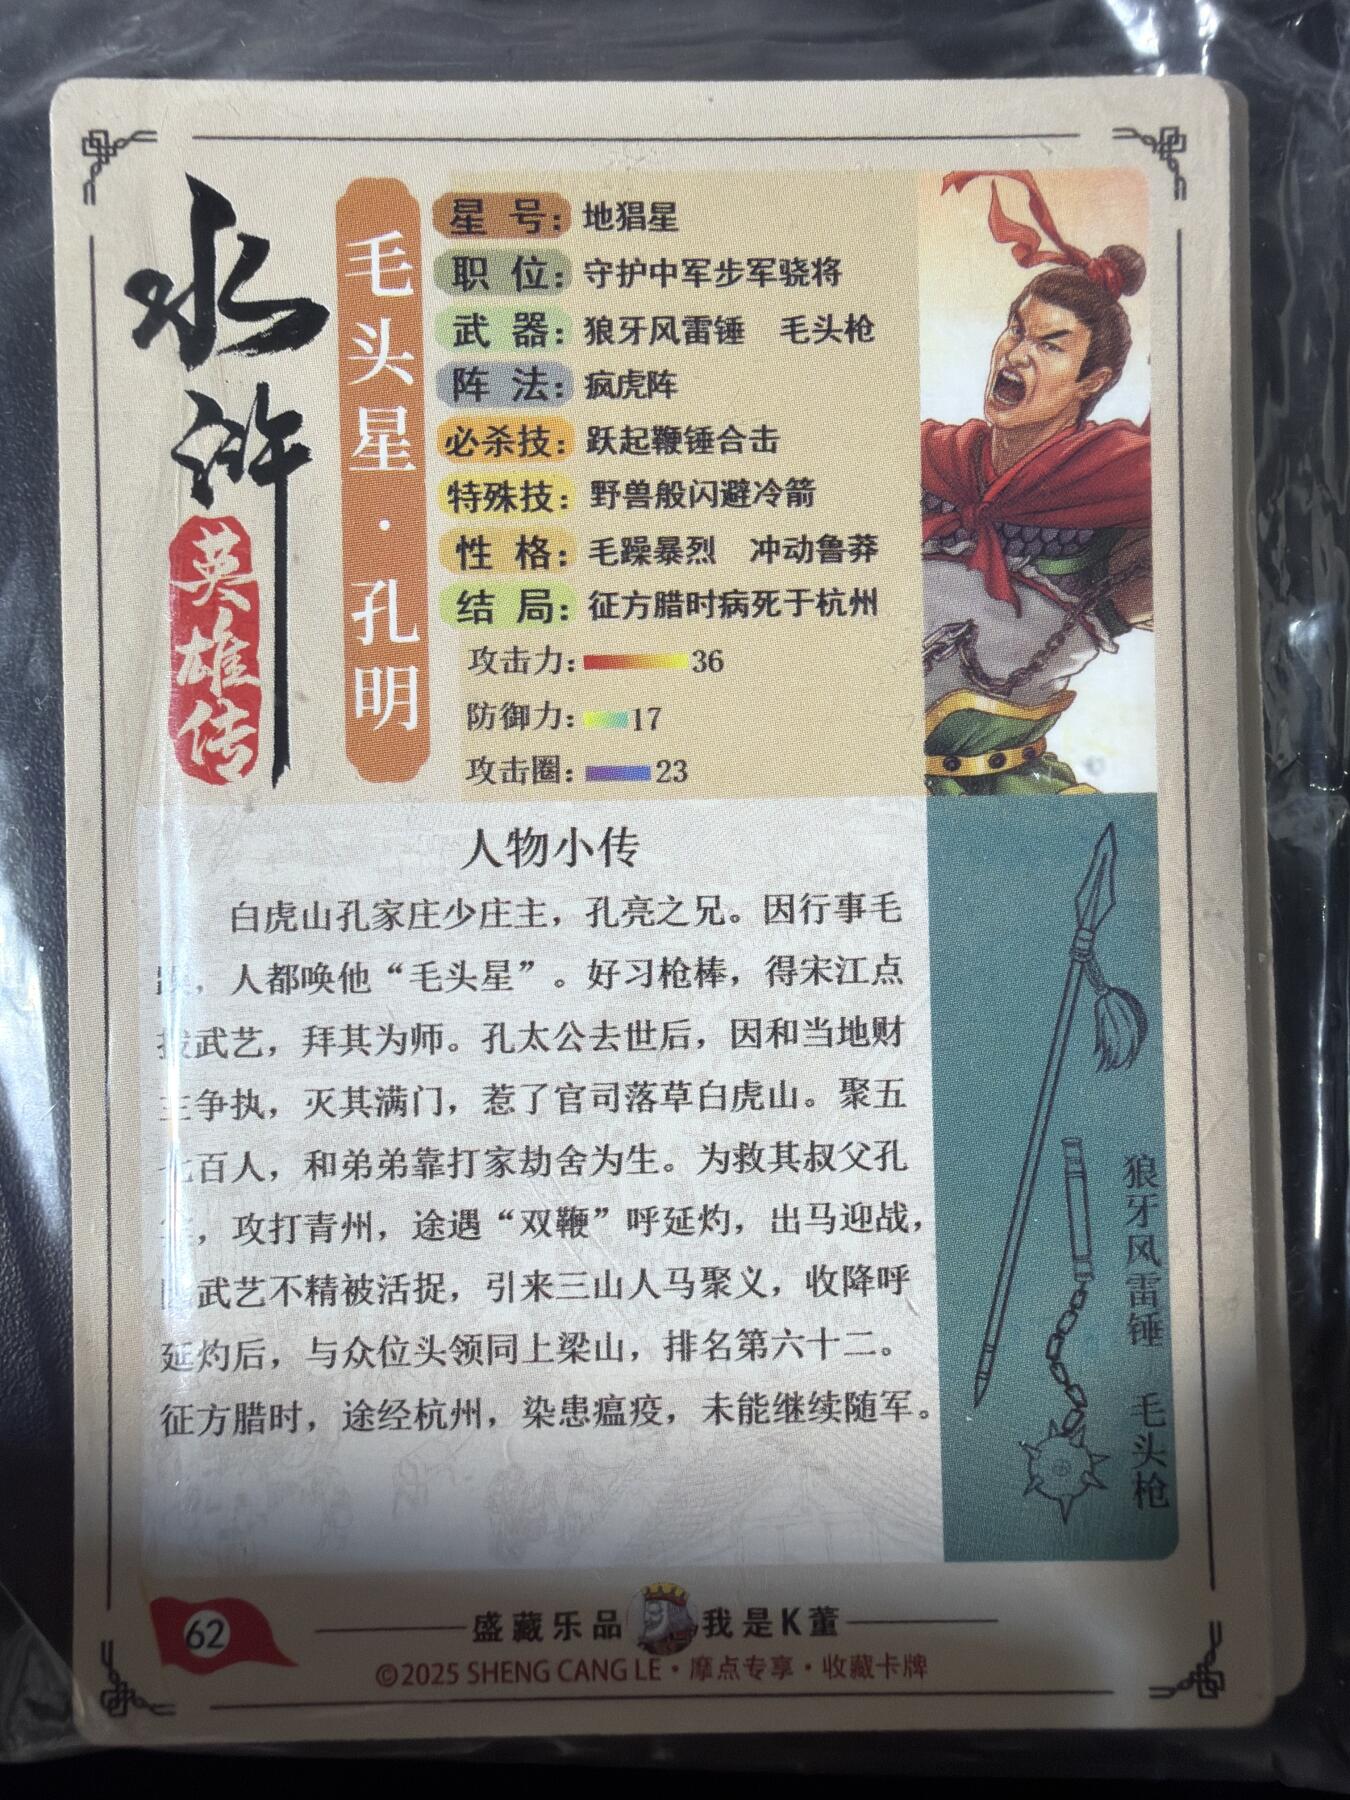 水浒
英雄传
毛头星·孔明
星号：地猖星
职位：守护中军步军骁将
武器：狼牙风雷锤 毛头枪
阵法：疯虎阵
必杀技：跃起鞭锤合击
特殊技：野兽般闪避冷箭
性格：毛躁暴烈 冲动鲁莽
结局：征方腊时病死于杭州
攻击力：36
防御力：17
攻击圈：23
人物小传
白虎山孔家庄少庄主，孔亮之兄。因行事毛
，人都唤他“毛头星”。好习枪棒，得宋江点
拨武艺，拜其为师。孔太公去世后，因和当地财
主争执，灭其满门，惹了官司落草白虎山。聚五
七百人，和弟弟靠打家劫舍为生。为救其叔父孔
，攻打青州，途遇“双鞭”呼延灼，出马迎战，
武艺不精被活捉，引来三山人马聚义，收降呼
延灼后，与众位头领同上梁山，排名第六十二。
征方腊时，途经杭州，染患瘟疫，未能继续随军。
狼牙风雷锤 毛头枪
62
盛藏乐品 我是K董
©2025 SHENG CANG LE·摩点专享·收藏卡牌